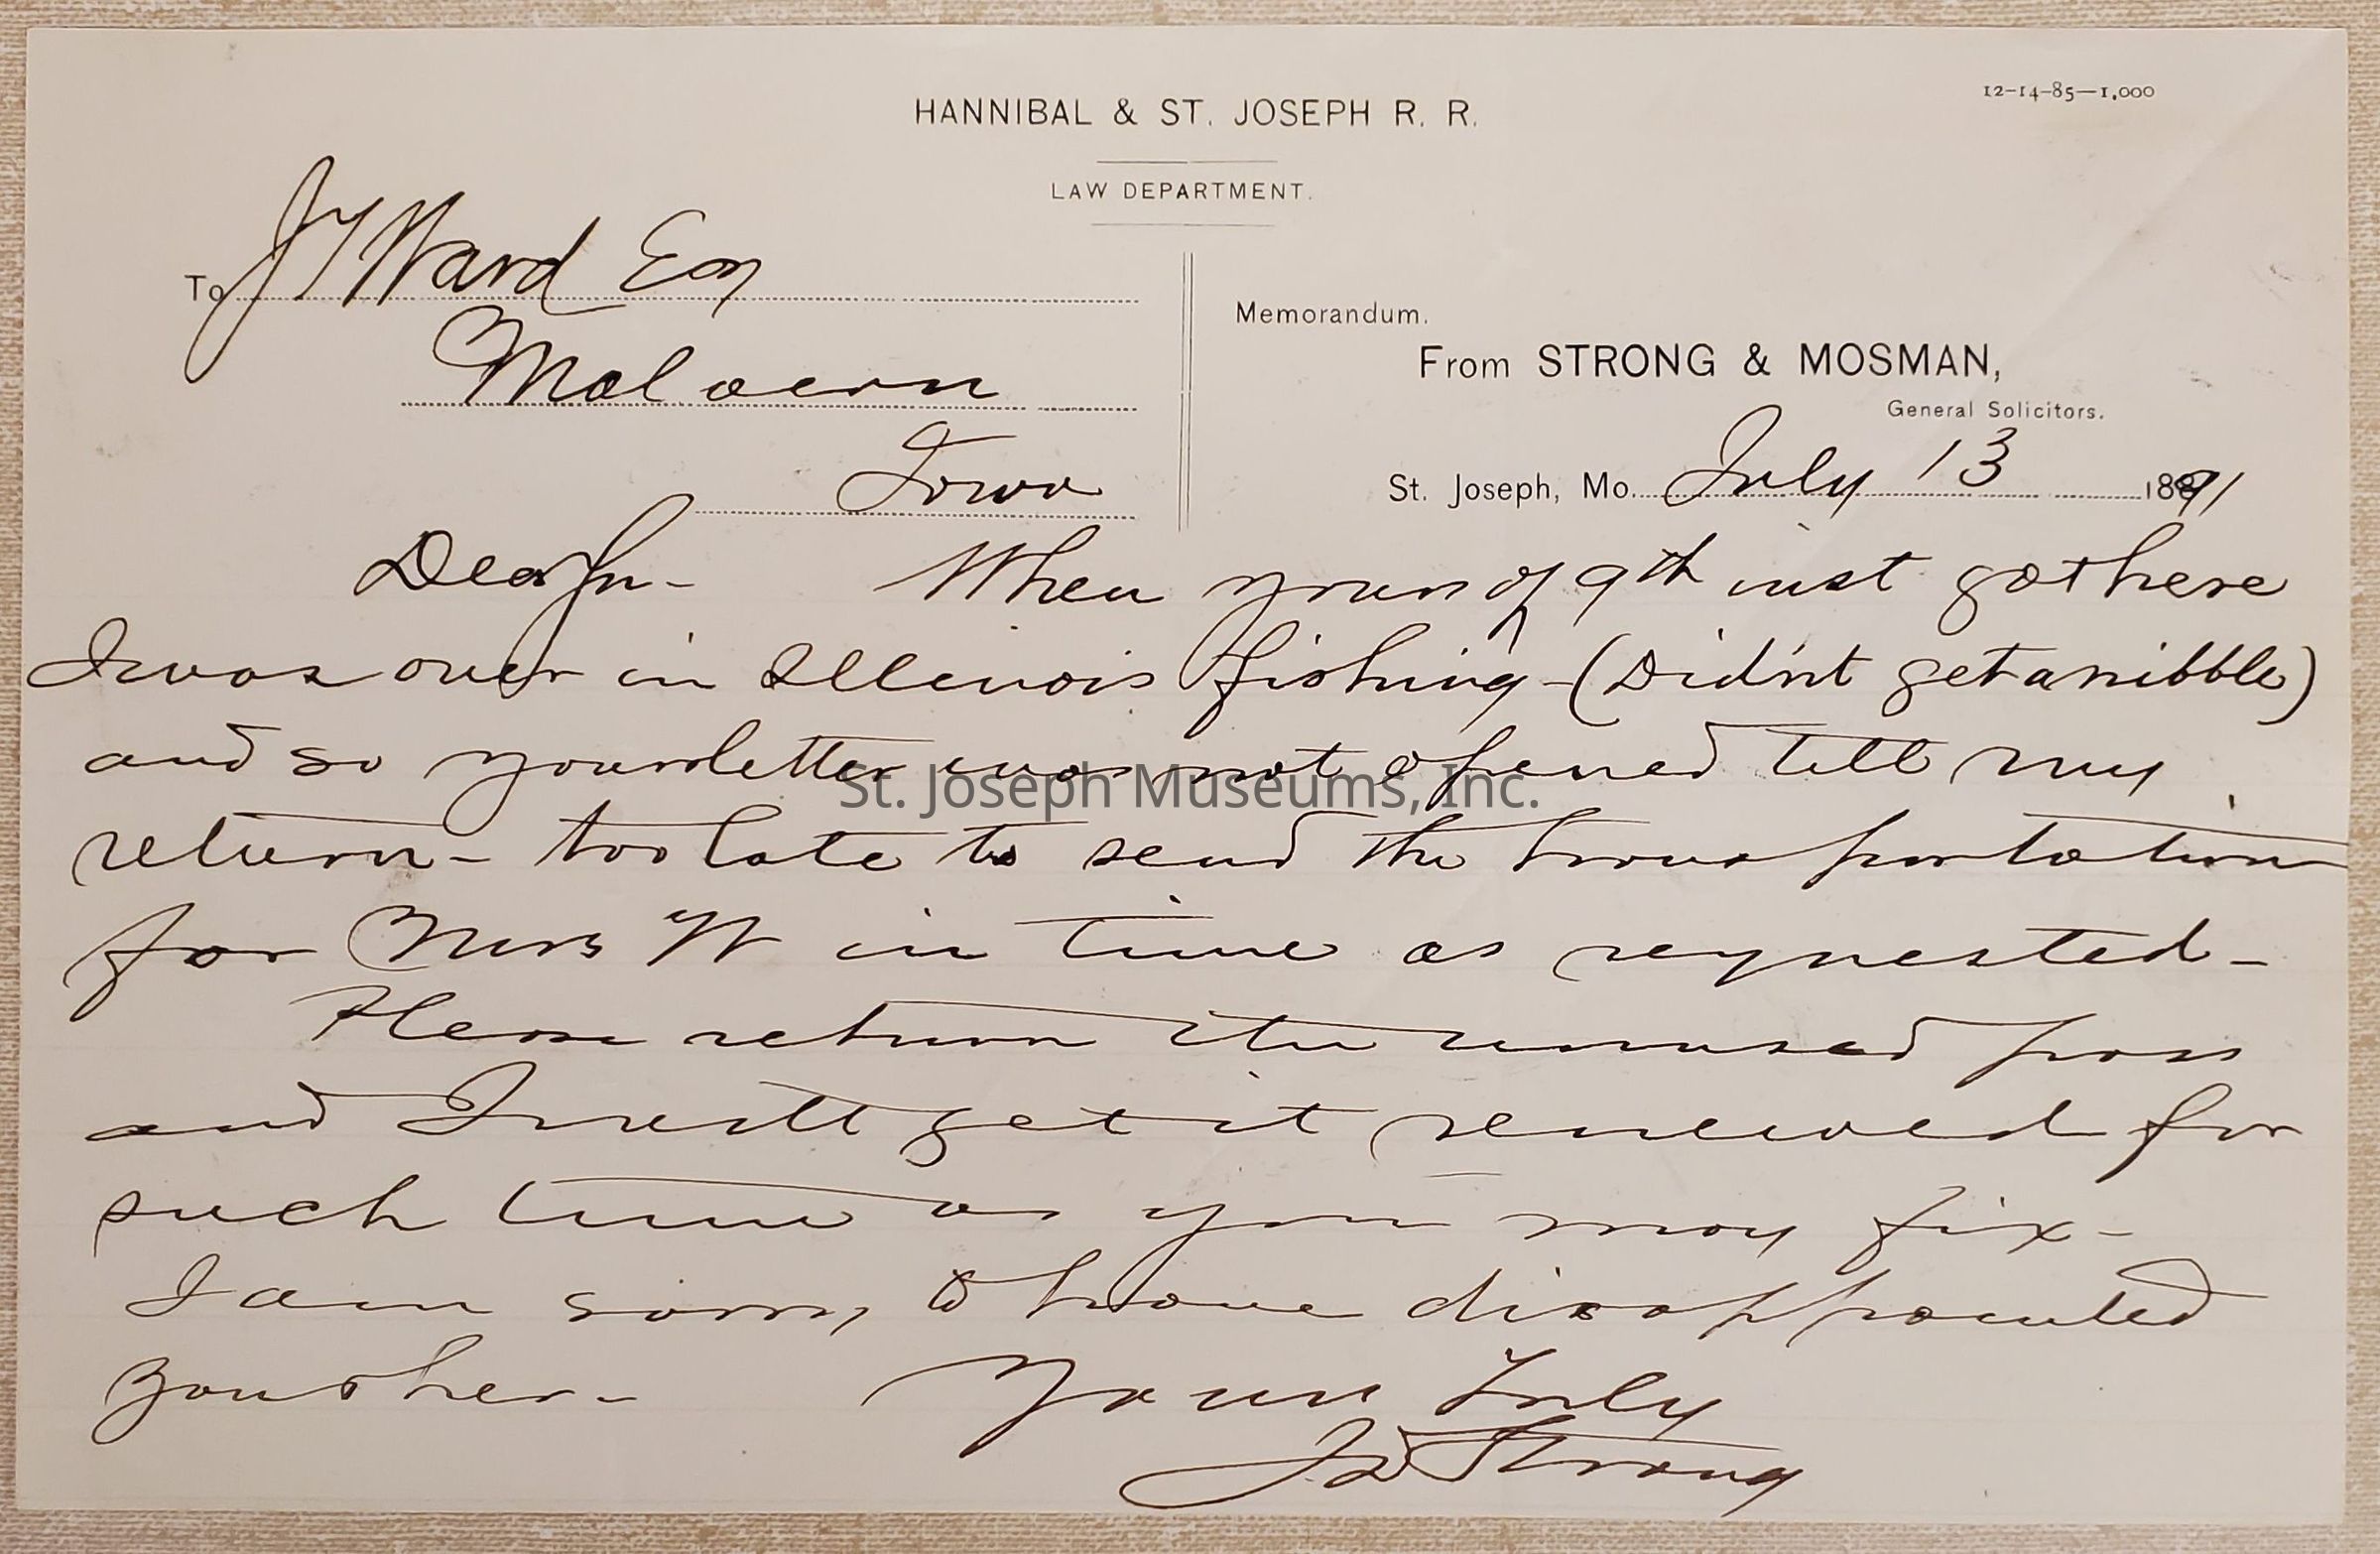 12-14-85—1,000
HANNIBAL & ST. JOSEPH R. R.
LAW DEPARTMENT.
To J Y Ward Esq
Malvern
Iowa
Memorandum.
From STRONG & MOSMAN,
General Solicitors.
St. Joseph, Mo. July 13 1891
Dear Sir - When yours of 9th inst got here
I was over in Illinois fishing - (Didn't get a nibble)
and so your letter was not opened till my
return - too late to send the transportation
for Mrs W in time as requested -
Please return the unused pass
and I will get it renewed for
such time as you may fix -
I am sorry to have disappointed
you & her - Yours Truly
Strong
St. Joseph Museums, Inc.